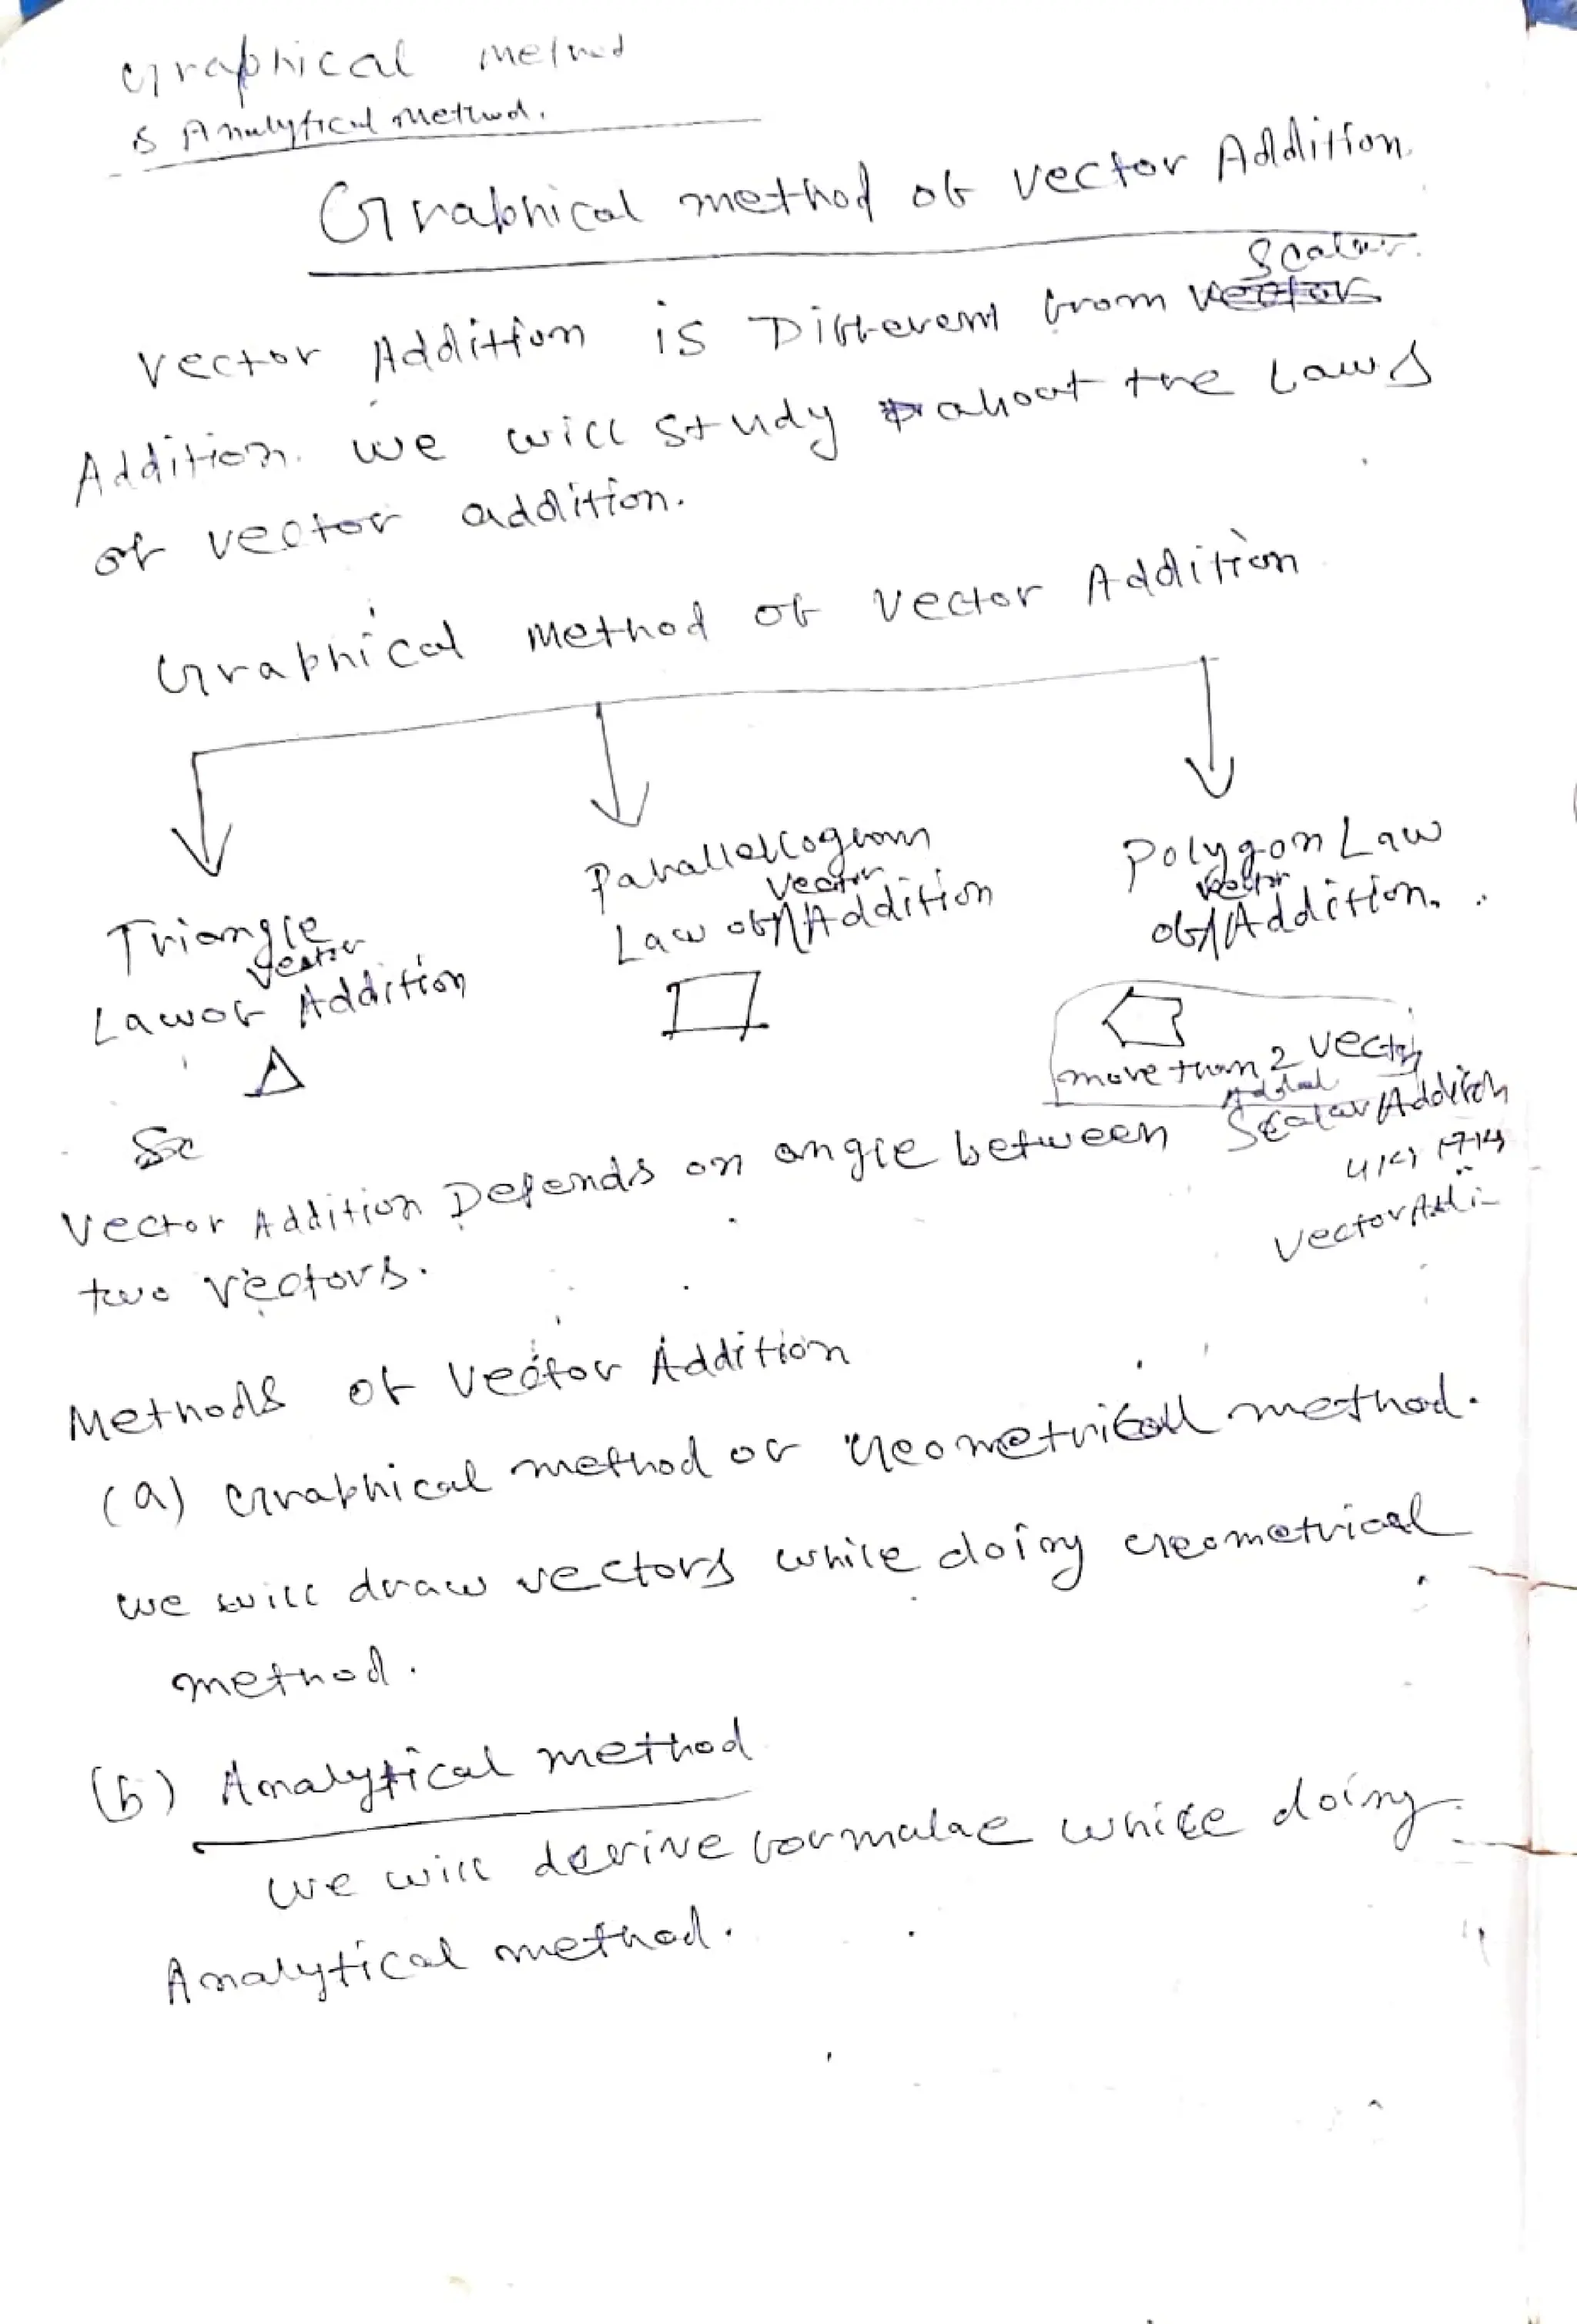 Graphical Method
& Analytical Method.
Graphical method of vector Addition.
Scalar.
Vector Addition is Different from vectors
Addition. we will study about the Laws
of vector addition.
Graphical Method of Vector Addition
Triangle
vector
Law of Addition
Parallellogram
vector
Law of Addition
Polygon Law
vector
of Addition.
more than 2 vectors
Added
Sc
Scalar Addition
4 Kg
Vector Addi-
Vector Addition Depends on angle between
two vectors.
Methods of Vector Addition
(a) Graphical method or Geometrical method.
we will draw vectors while doing Geometrical
method.
(b) Analytical method
we will derive formulae while doing
Analytical method.